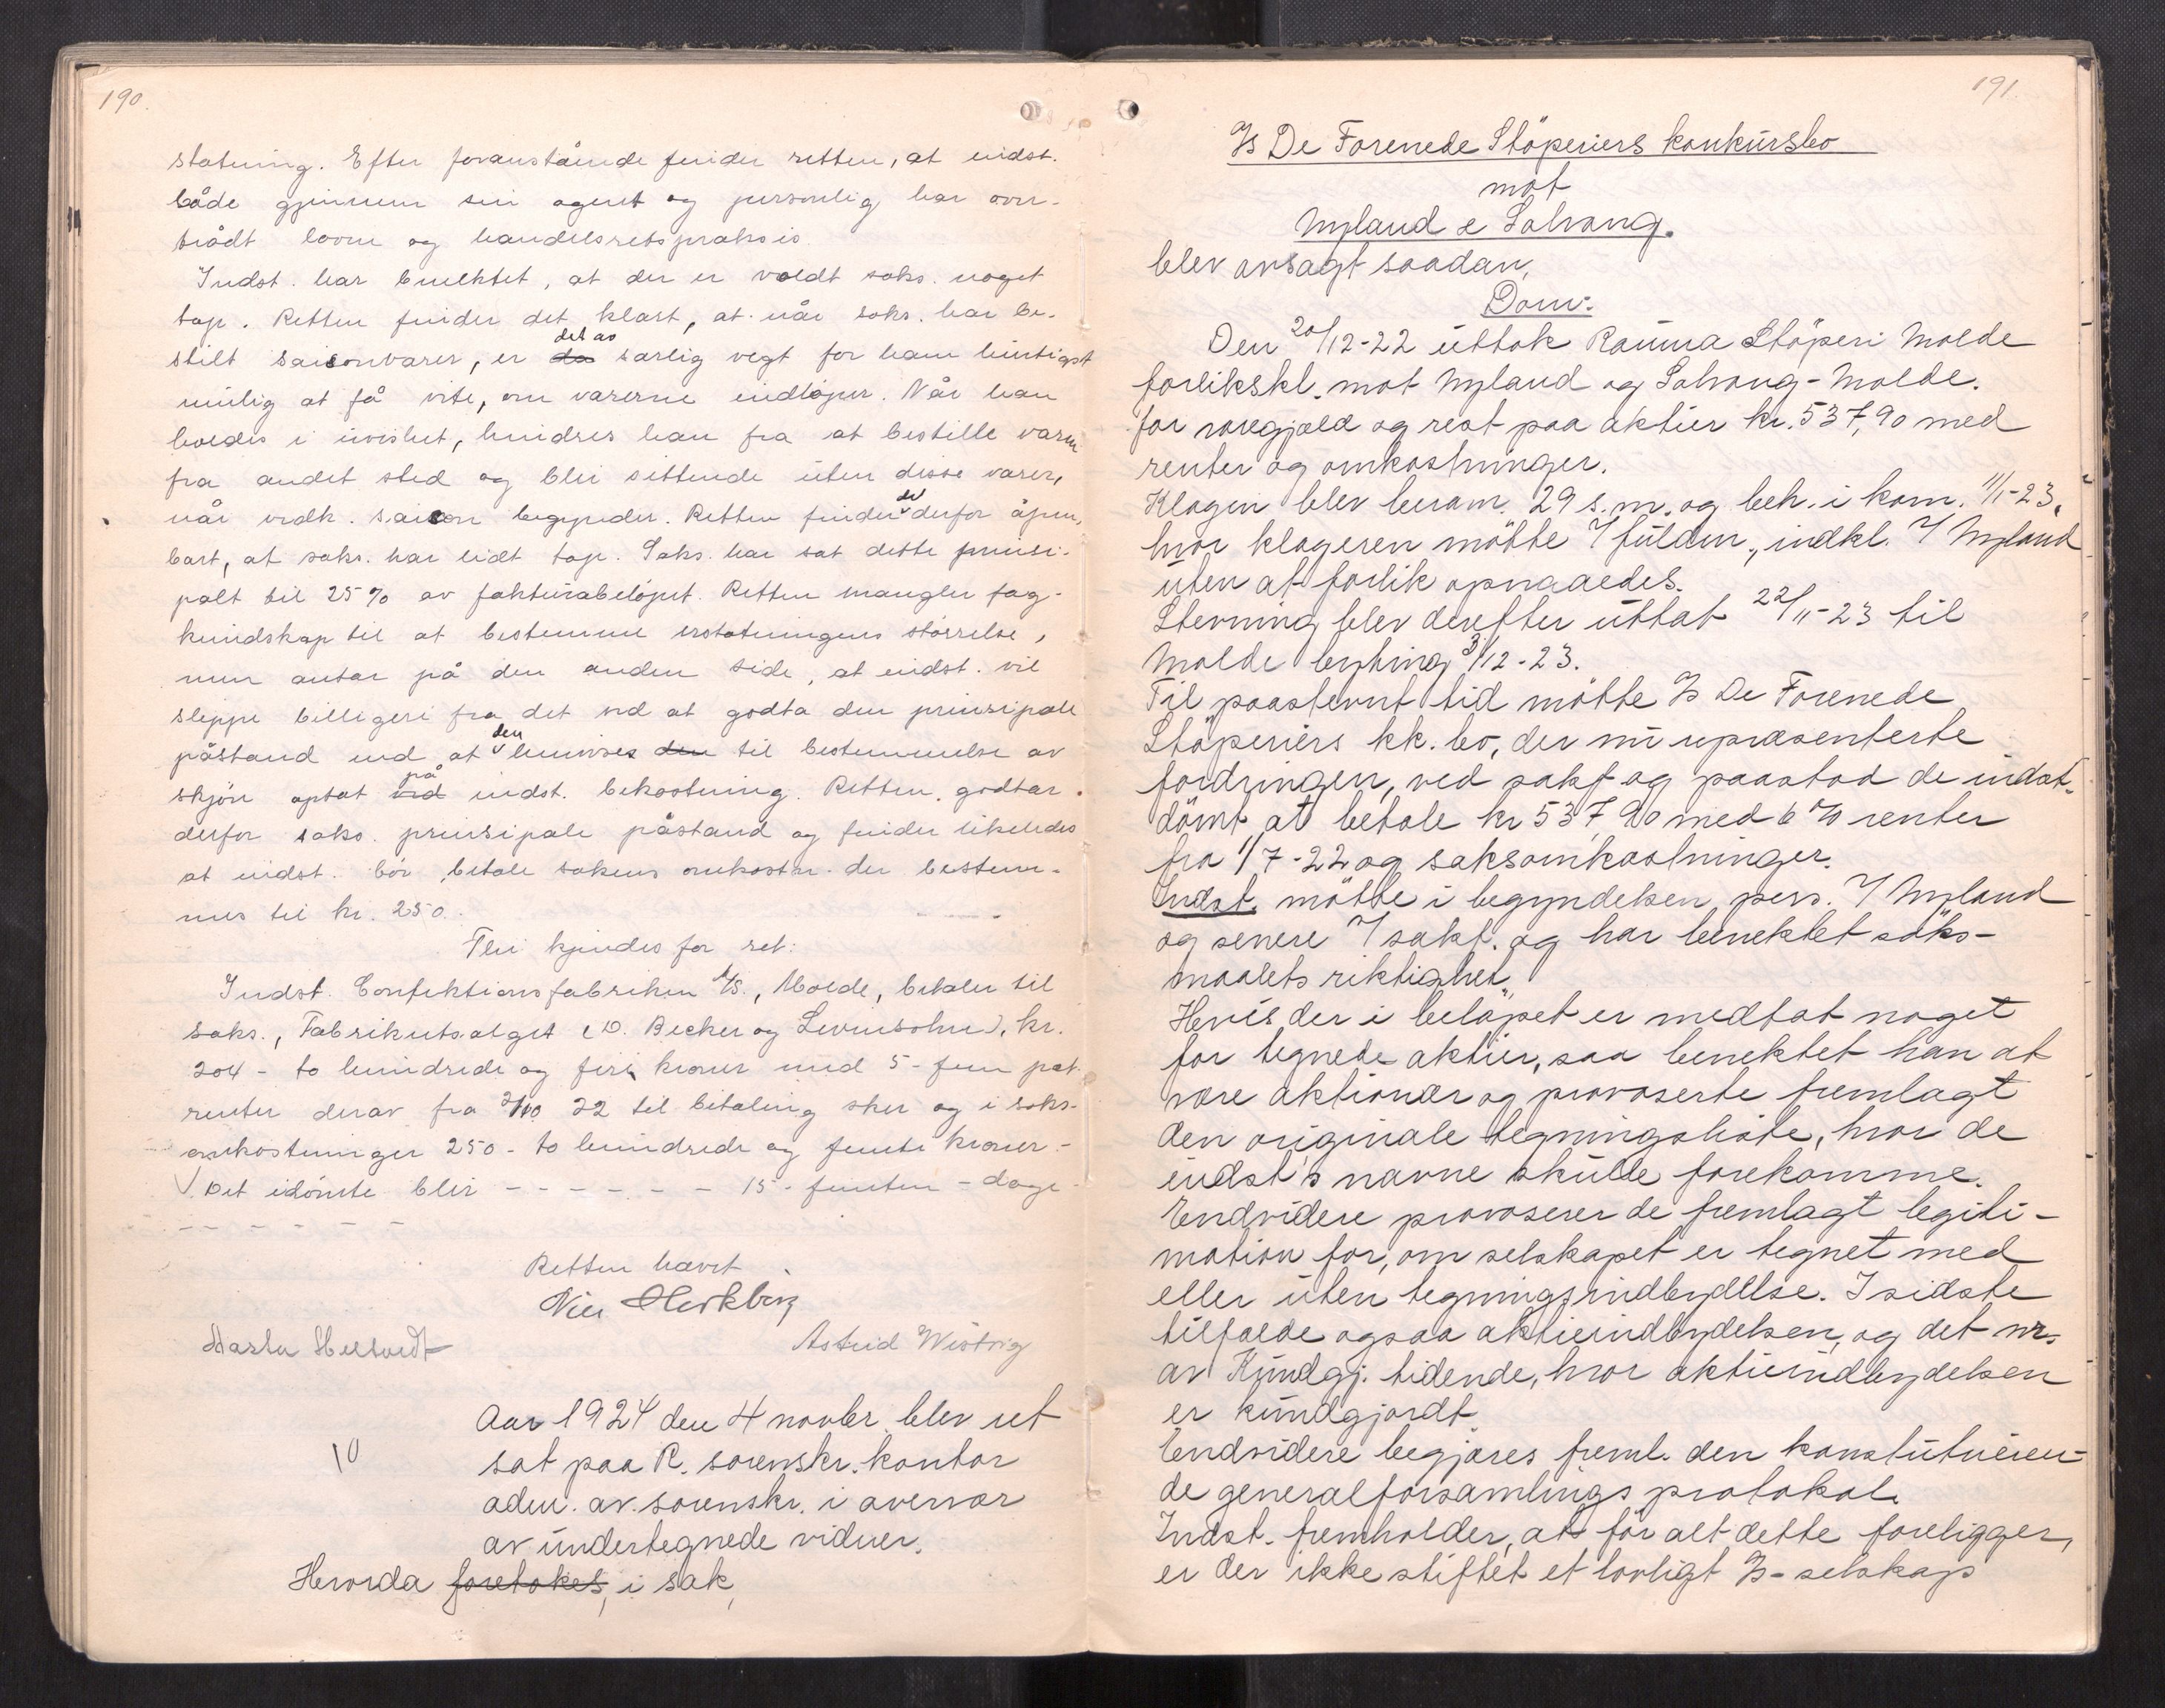 190.
statning. Efter foranstående finder retten, at indst.
både gjennem sin agent og personlig har over-
trådt loven og handelsretspraksis.
Indst. har benektet, at der er voldt saks. noget
tap. Retten finder det klart, at når saks. har be-
stilt saisonvarer, er det av særlig vegt for ham hurtigst
mulig at få vite, om varerne indløper. Når han
holdes i uvishet, hindres han fra at bestille varer
fra andet sted og blir sittende uten disse varer,
når vedk. saison begynder. Retten finder det derfor åpen-
bart, at saks. har lidt tap. Saks. har sat dette prinsi-
palt til 25% av fakturabeløpet. Retten mangler fag-
kundskap til at bestemme erstatningens størrelse,
men antar på den anden side, at indst. vil
slippe billigere fra det ved at godta den prinsipale
påstand end at den henvises den til bestemmelse av
skjøn optat på ved indst. bekostning. Retten godtar
derfor saks. prinsipale påstand og finder likeledes
at indst. bør betale sakens omkostn. der bestem-
mes til kr. 250.
Thi kjendes for ret:
Indst. Confektionsfabriken A/S., Molde, betaler til
saks., Fabrikutsalget (D. Becker og Levinsohn), kr.
204 - to hundrede og fire kroner med 5 - fem pct.
renter derav fra 2/10 22 til betaling sker og i saks-
omkostninger 250 - to hundrede og femti kroner. -
Det idømte blir - - - - - - 15 - femten - dage
- - - - - -
Retten hævet
Astrid Wistrig
10
Aar 1924 den 4 novbr. blev ret
sat paa R. sorenskr. kontor
adm. av sorenskr. i overvær
av undertegnede vidner.
Hvorda foretokes, i sak,
191.
A/S De Forenede Støperiers konkursbo
mot
Myland & Solvang.
blev avsagt saadan,
Dom:
Den 20/12-22 uttok Rauma Støperi Molde
forlikskl. mot Myland og Solvang - Molde.
for varegjæld og rest paa aktier kr. 537,90 med
renter og omkostninger.
Klagen blev beram. 29 s.m. og beh. i kom. 11/1-23,
hvor klageren møtte v/ fuldm., indkl. v/ Myland
uten at forlik opnaaedes.
Stevning blev derefter uttat 22/11-23 til
Molde bything 3/12-23.
Til paastevnt tid møtte A/S De Forenede
Støperiers kk. bo, der nu representerte
fordringen, ved sakf. og paastod de indst.
dømt at betale kr 537,90 med 6% renter
fra 1/7-22 og saksomkostninger.
Indst. møtte i begyndelsen pers. v/ Myland
og senere v/ sakf. og har benektet søks-
maalets riktighet.
Hvis der i beløpet er medtat noget
for tegnede aktier, saa benektet han at
være aktionær og provoserte fremlagt
den originale tegningsliste, hvor de
indst's navne skulde forekomme.
Endvidere provoserer de fremlagt legiti-
mation for, om selskapet er tegnet med
eller uten tegningsindbydelse. I sidste
tilfælde ogsaa aktieindbydelsen, og det nr.
av Kundgj. tidende, hvor aktieindbydelsen
er kundgjordt.
Endvidere begjæres freml. den konstitueren-
de generalforsamlings protokol.
Indst. fremholder, at før alt dette foreligger,
er der ikke stiftet et lovligt A/S-selskap